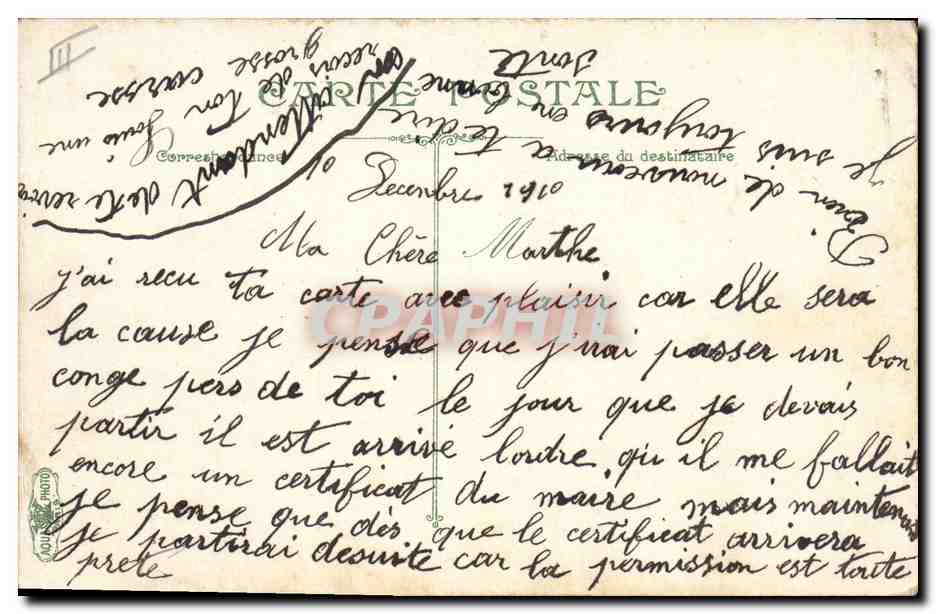 III
CARTE POSTALE
Correspondance
Adresse du destinataire
10 Decembre 1910
Ma Chère Marthe
j'ai recu ta carte avec plaisir car elle sera
la cause je pense que j'irai passer un bon
conge pers de toi le jour que je devais
partir il est arrivé lordre qu'il me fallait
encore un certificat du maire mais maintenant
je pense que dès que le certificat arrivera
je partirai desuite car la permission est toute
prete
Rien de nouveau a te dire
je suis toujours en bonne
santé
en attendant de te revoir
recois de ton
grosse caresse
CPAPHIL
PHOTO